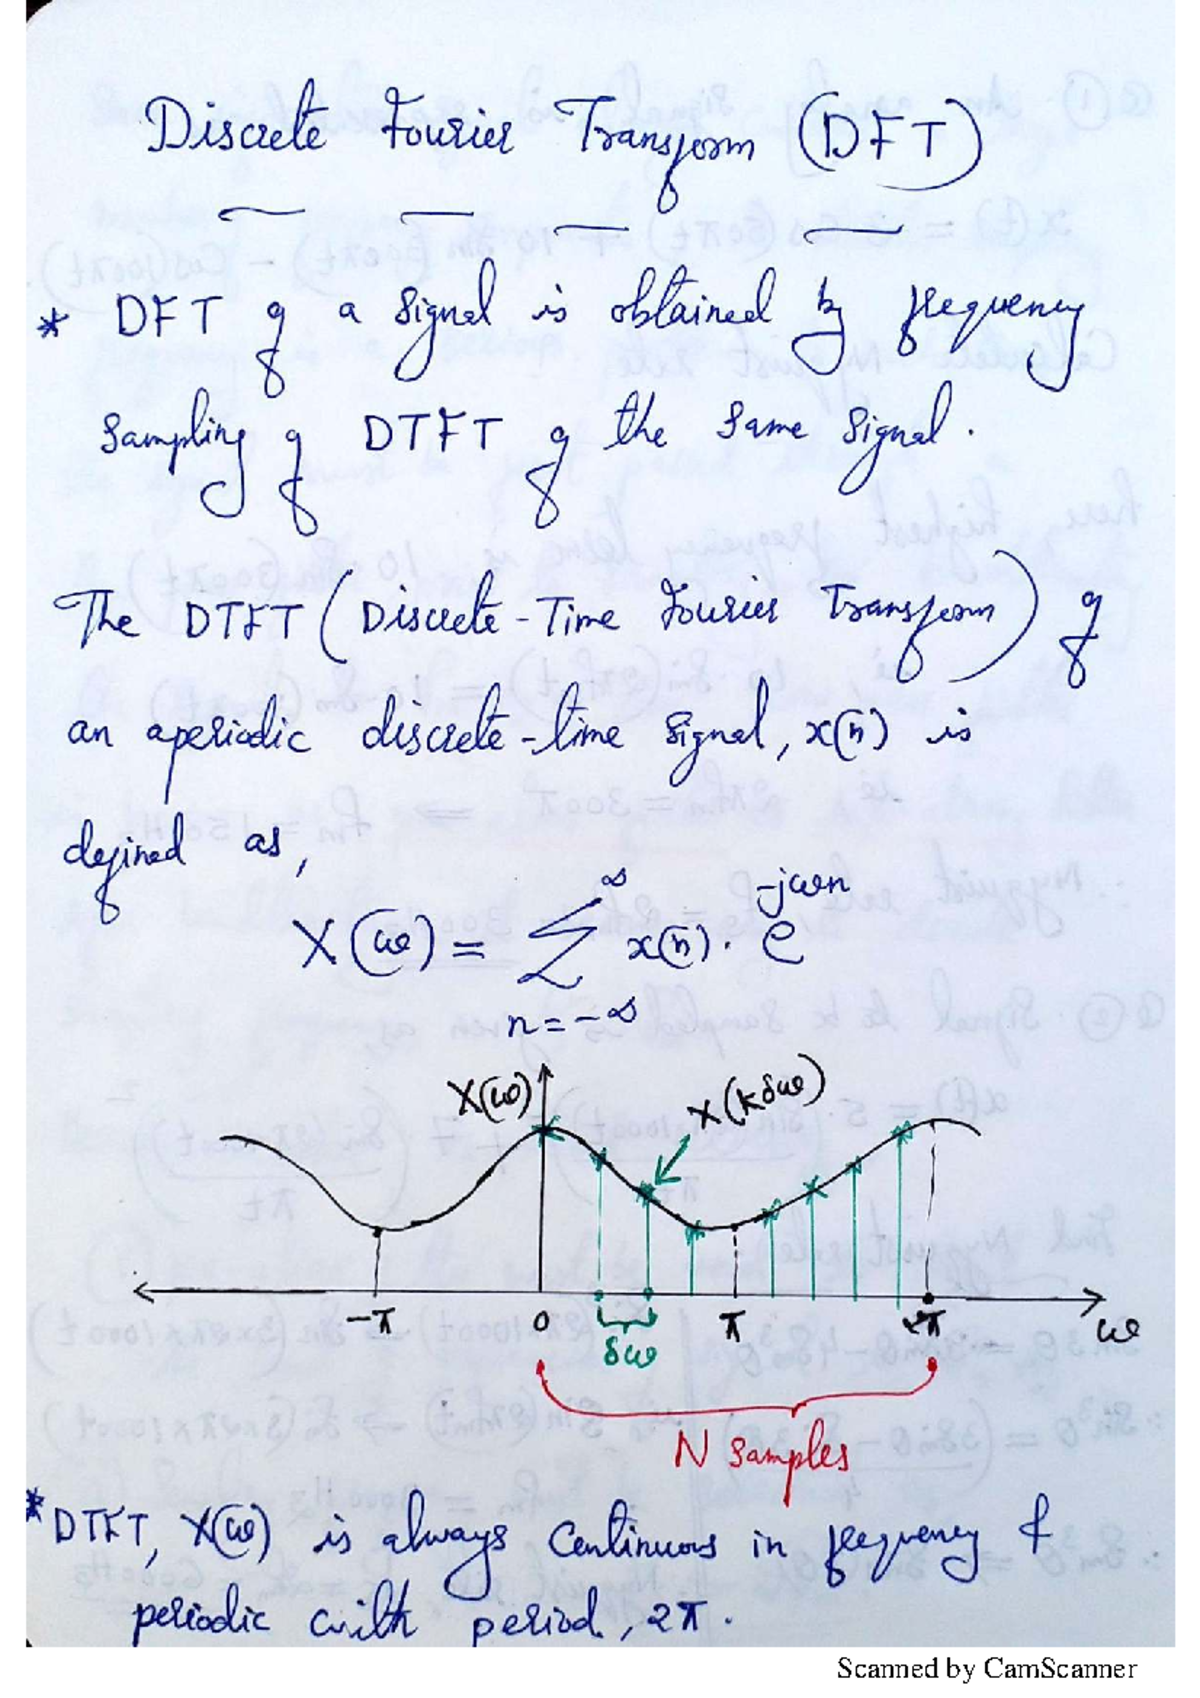 Discrete Fourier Transform (DFT)
* DFT of a signal is obtained by frequency
sampling of DTFT of the same signal.
The DTFT (Discrete-Time Fourier Transform) of
an aperiodic discrete-time signal, x(n) is
defined as,
X(ω) = ∑ x(n) · e^{-jωn}
∞
n = -∞
X(ω)
X(kδω)
-π 0 π 2π ω
δω
N samples
* DTFT, X(ω) is always continuous in frequency &
periodic with period, 2π.
Scanned by CamScanner